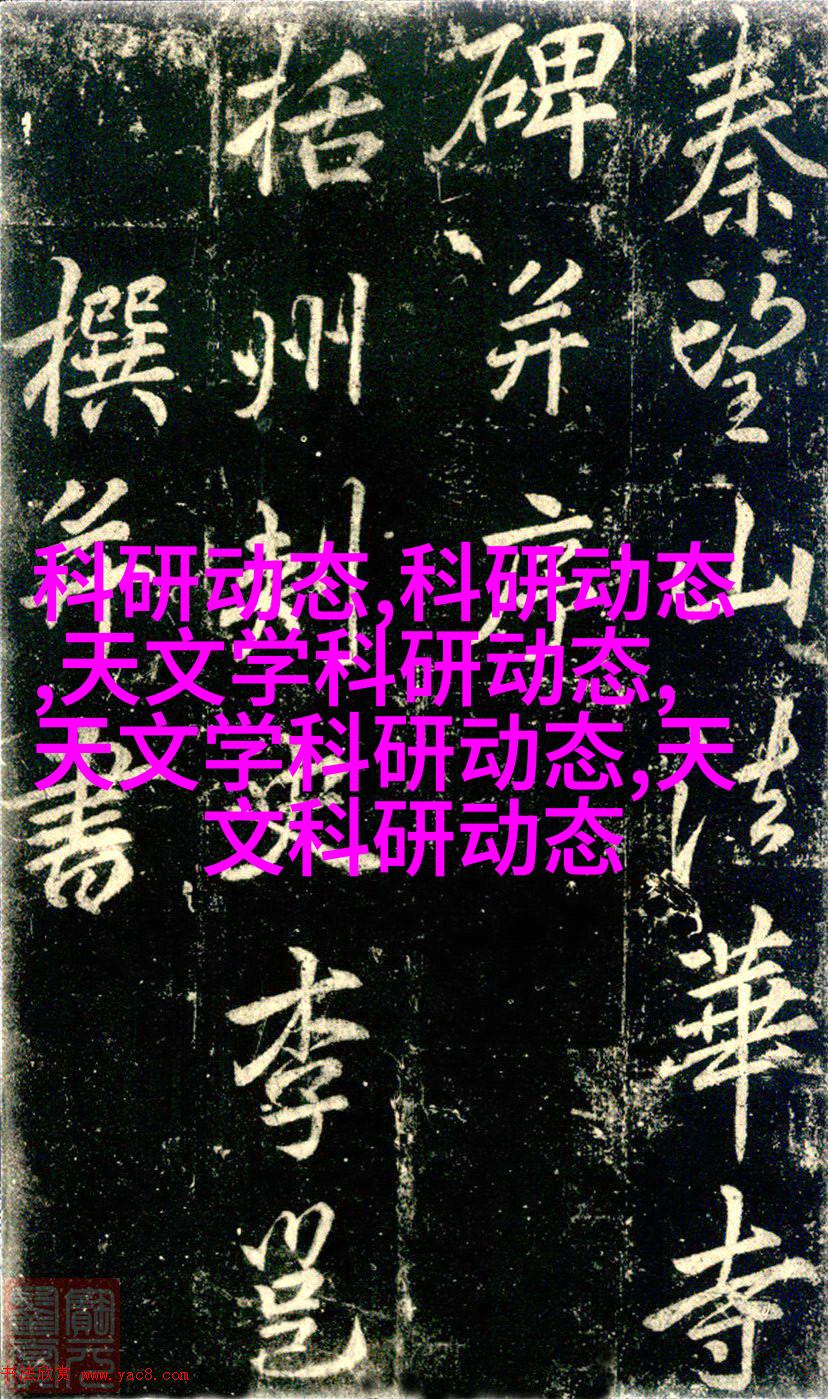 秦望山法華寺
碑并序
括州刺史李邕
撰并書
科研动态,科研动态
,天文学科研动态,
天文学科研动态,天
文科研动态
书法欣赏 www.yac8.com